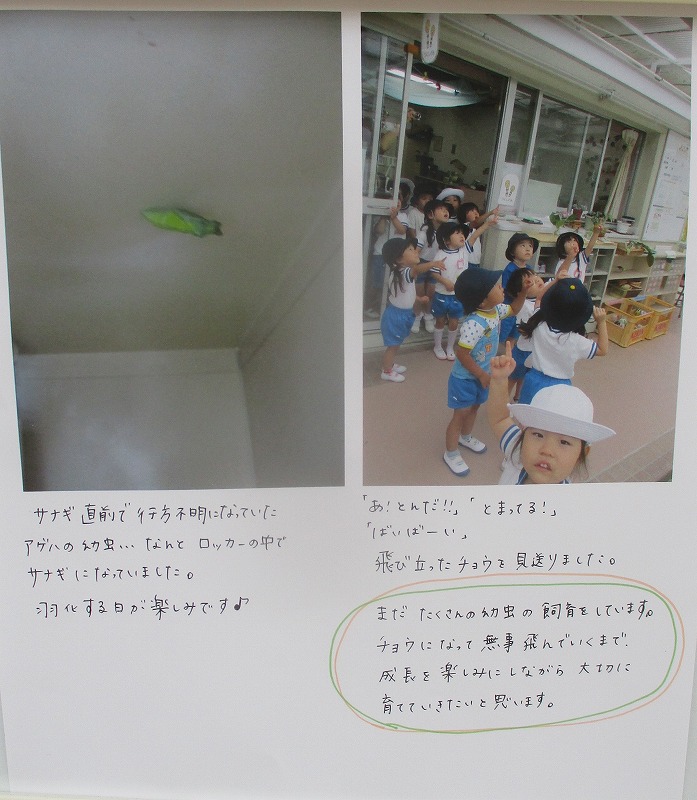 サナギ直前で行方不明になっていた
アゲハの幼虫… なんと ロッカーの中で
サナギになっていました。
羽化する日が楽しみです♪
「あ！とんだ!!」「とまってる！」
「ばいばーい」
飛び立ったチョウを見送りました。
まだ たくさんの幼虫の飼育をしています。
チョウになって無事飛んでいくまで、
成長を楽しみにしながら 大切に
育てていきたいと思います。